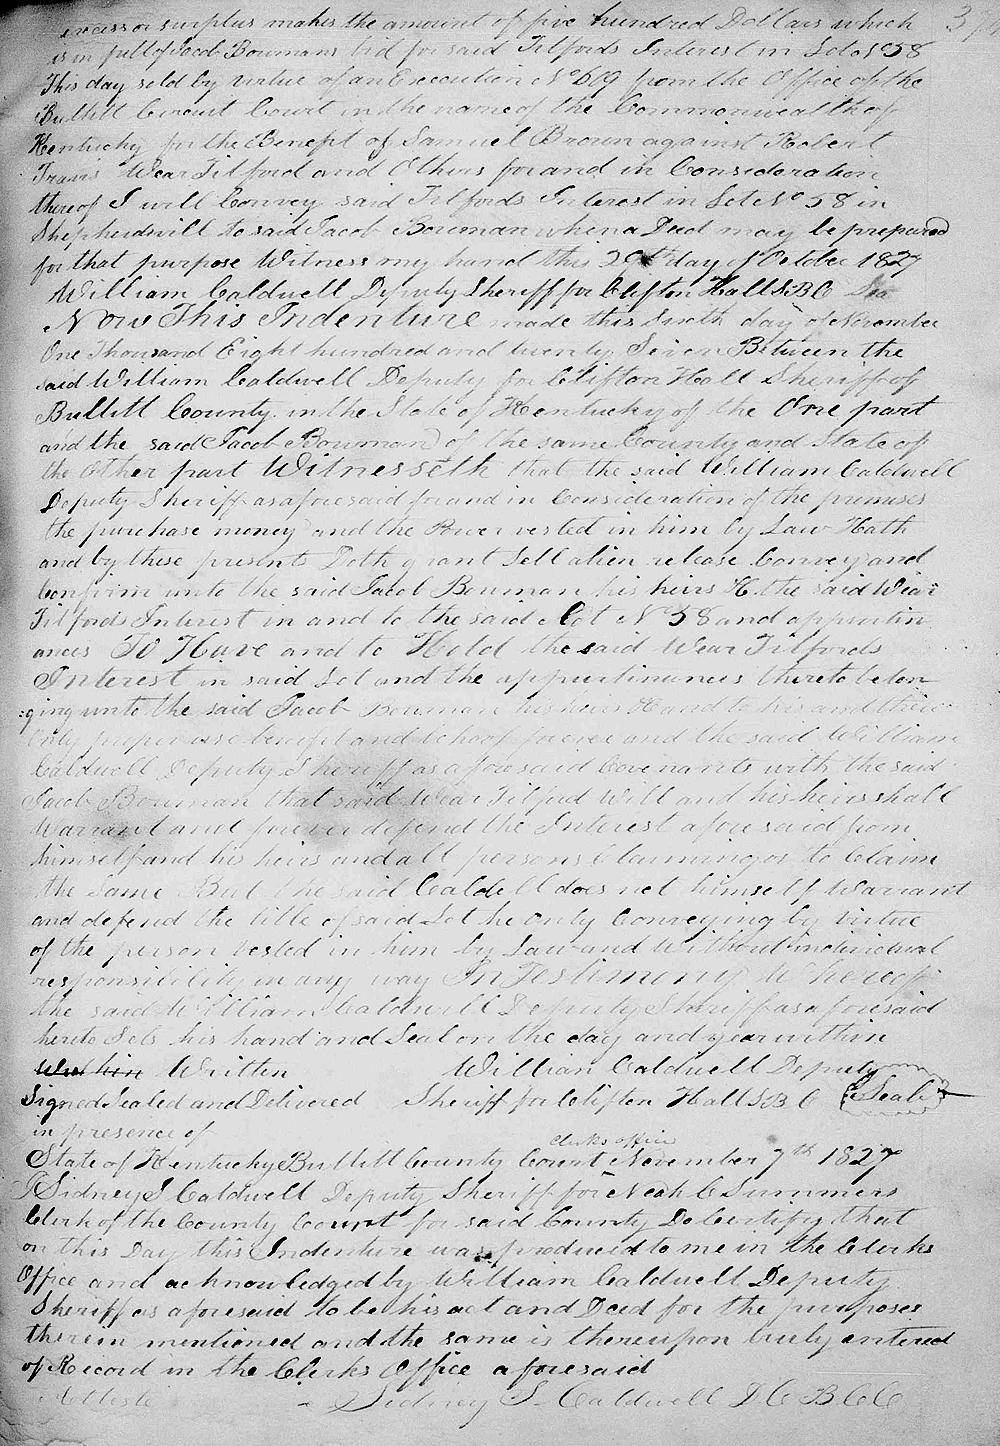 excess or surplus makes the amount of five hundred Dollars which
is in full of Jacob Boumans bid for said Tilfords Interest in Lot No 58
This day sold by virtue of an Execution No 619 from the Office of the
Bullitt Circuit Court in the name of the Commonwealth of
Kentucky for the Benefit of Samuel Brown against Robert
Travis Wear Tilford and Others for and in Consideration
thereof I will Convey said Tilfords Interest in Lot No 58 in
Shepherdsvill to said Jacob Bouman when a Deed may be prepared
for that purpose Witness my hand this 29th day of October 1827
William Caldwell Deputy Sheriff for Clifton Hall S B C
Now This Indenture made this Sixth day of November
One Thousand Eight hundred and twenty Seven Between the
said William Caldwell Deputy for Clifton Hall Sheriff of
Bullitt County in the State of Kentucky of the One part
and the said Jacob Bouman of the same County and State of
the Other part Witnesseth that the said William Caldwell
Deputy Sheriff as aforesaid for and in Consideration of the premises
the purchase money and the Power vested in him by Law Hath
and by these presents Doth grant Sell alien release Convey and
Confirm unto the said Jacob Bouman his heirs &c the said Wear
Tilfords Interest in and to the said Lot No 58 and appurtin
ances To Have and to Hold the said Wear Tilfords
Interest in said Lot and the appurtinances thereto belon
ging unto the said Jacob Bouman his heirs &c and to his and their
Only proper use benefit and behoof forever and the said William
Caldwell Deputy Sheriff as aforesaid Covenants with the said
Jacob Bouman that said Wear Tilford Will and his heirs shall
Warrant and forever defend the Interest aforesaid from
himself and his heirs and all persons Claiming or to Claim
the Same But the said Caldell does not himself Warrant
and defend the title of said Lot he only Conveying by virtue
of the person vested in him by Law and Without individual
responsibility in any way In Testimony Whereof
the said William Caldwell Deputy Sheriff as aforesaid
hereto Sets his hand and Seal on the day and year within
Written William Caldwell Deputy
Signed Sealed and Delivered Sheriff for Clifton Hall S B C Seal
in presence of
clerks office
State of Kentucky Bullitt County Court November 7th 1827
I Sidney S Caldwell Deputy Sheriff for Noah C Summers
Clerk of the County Court for said County Do Certify that
on this Day this Indenture was produced to me in the Clerks
Office and acknowledged by William Caldwell Deputy
Sheriff as aforesaid to be his act and Deed for the purposes
therein mentioned and the same is thereupon truly entered
of Record in the Clerks Office aforesaid
Atteste Sidney S Caldwell D C B C C